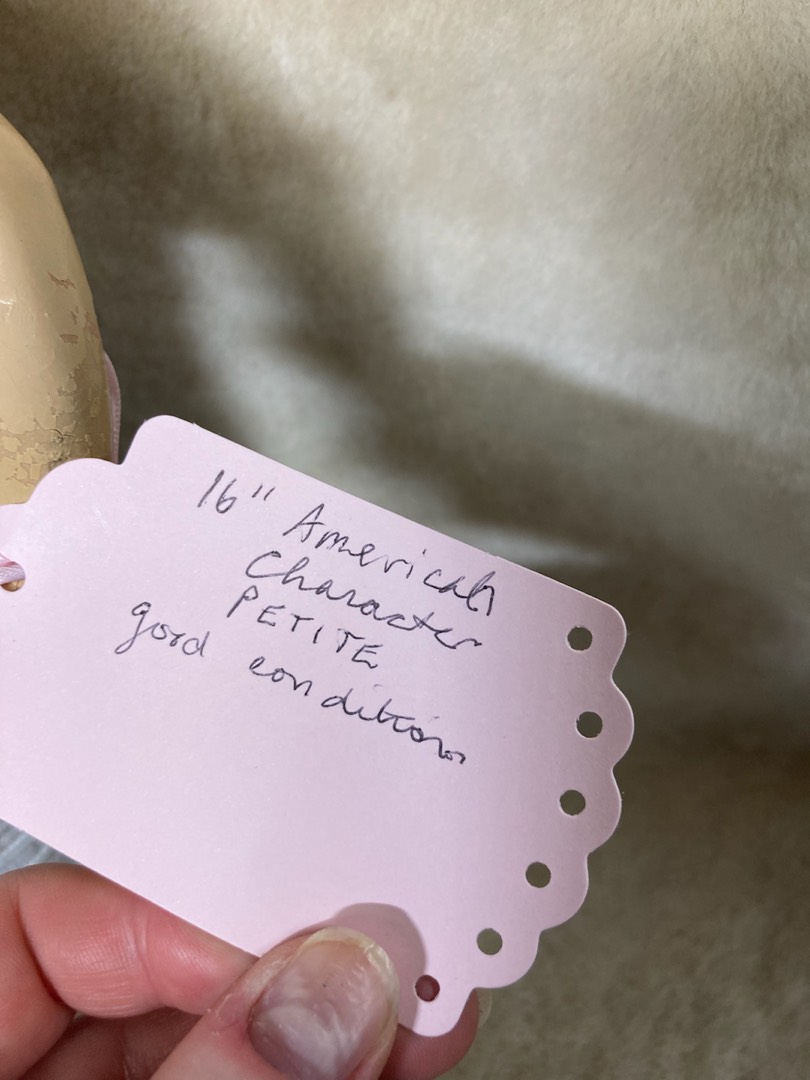 16" American
Character
PETITE
good condition